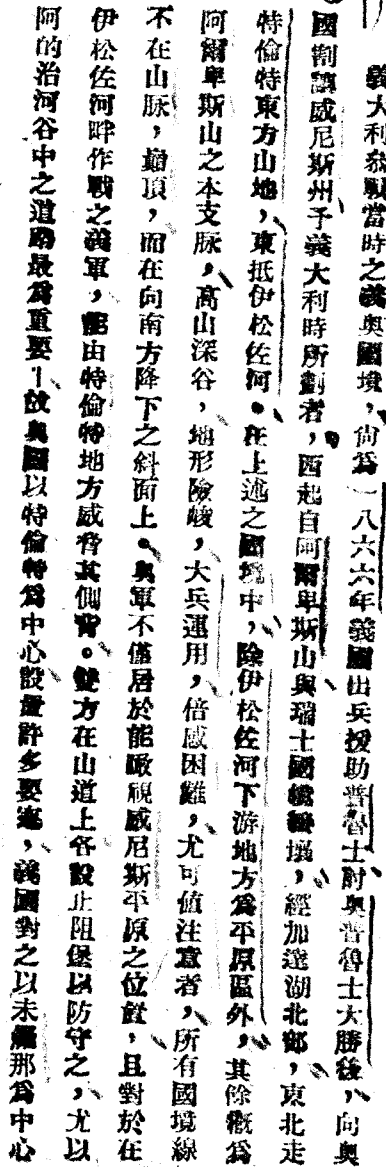 義大利參戰當時之義奧國境，尙爲一八六六年義國出兵援助普魯士討奧普魯士大勝後，向奧
國割讓威尼斯州予義大利時所劃者，西起自阿爾卑斯山與瑞士國境接壤，經加達湖北部，東北走
特倫特東方山地，東抵伊松佐河。在上述之國境中，除伊松佐河下游地方爲平原區外，其餘概爲
阿爾卑斯山之本支脉，高山深谷，地形險峻，大兵運用，倍感困難，尤可值注意者，所有國境線
不在山脉，巔頂，而在向南方降下之斜面上。奧軍不僅居於能瞰視威尼斯平原之位置，且對於在
伊松佐河畔作戰之義軍，能由特倫特地方威脅其側背。雙方在山道上各設止阻堡以防守之，尤以
阿的治河谷中之道路最爲重要—故奧國以特倫特爲中心設置許多要塞，義國對之以未羅那爲中心